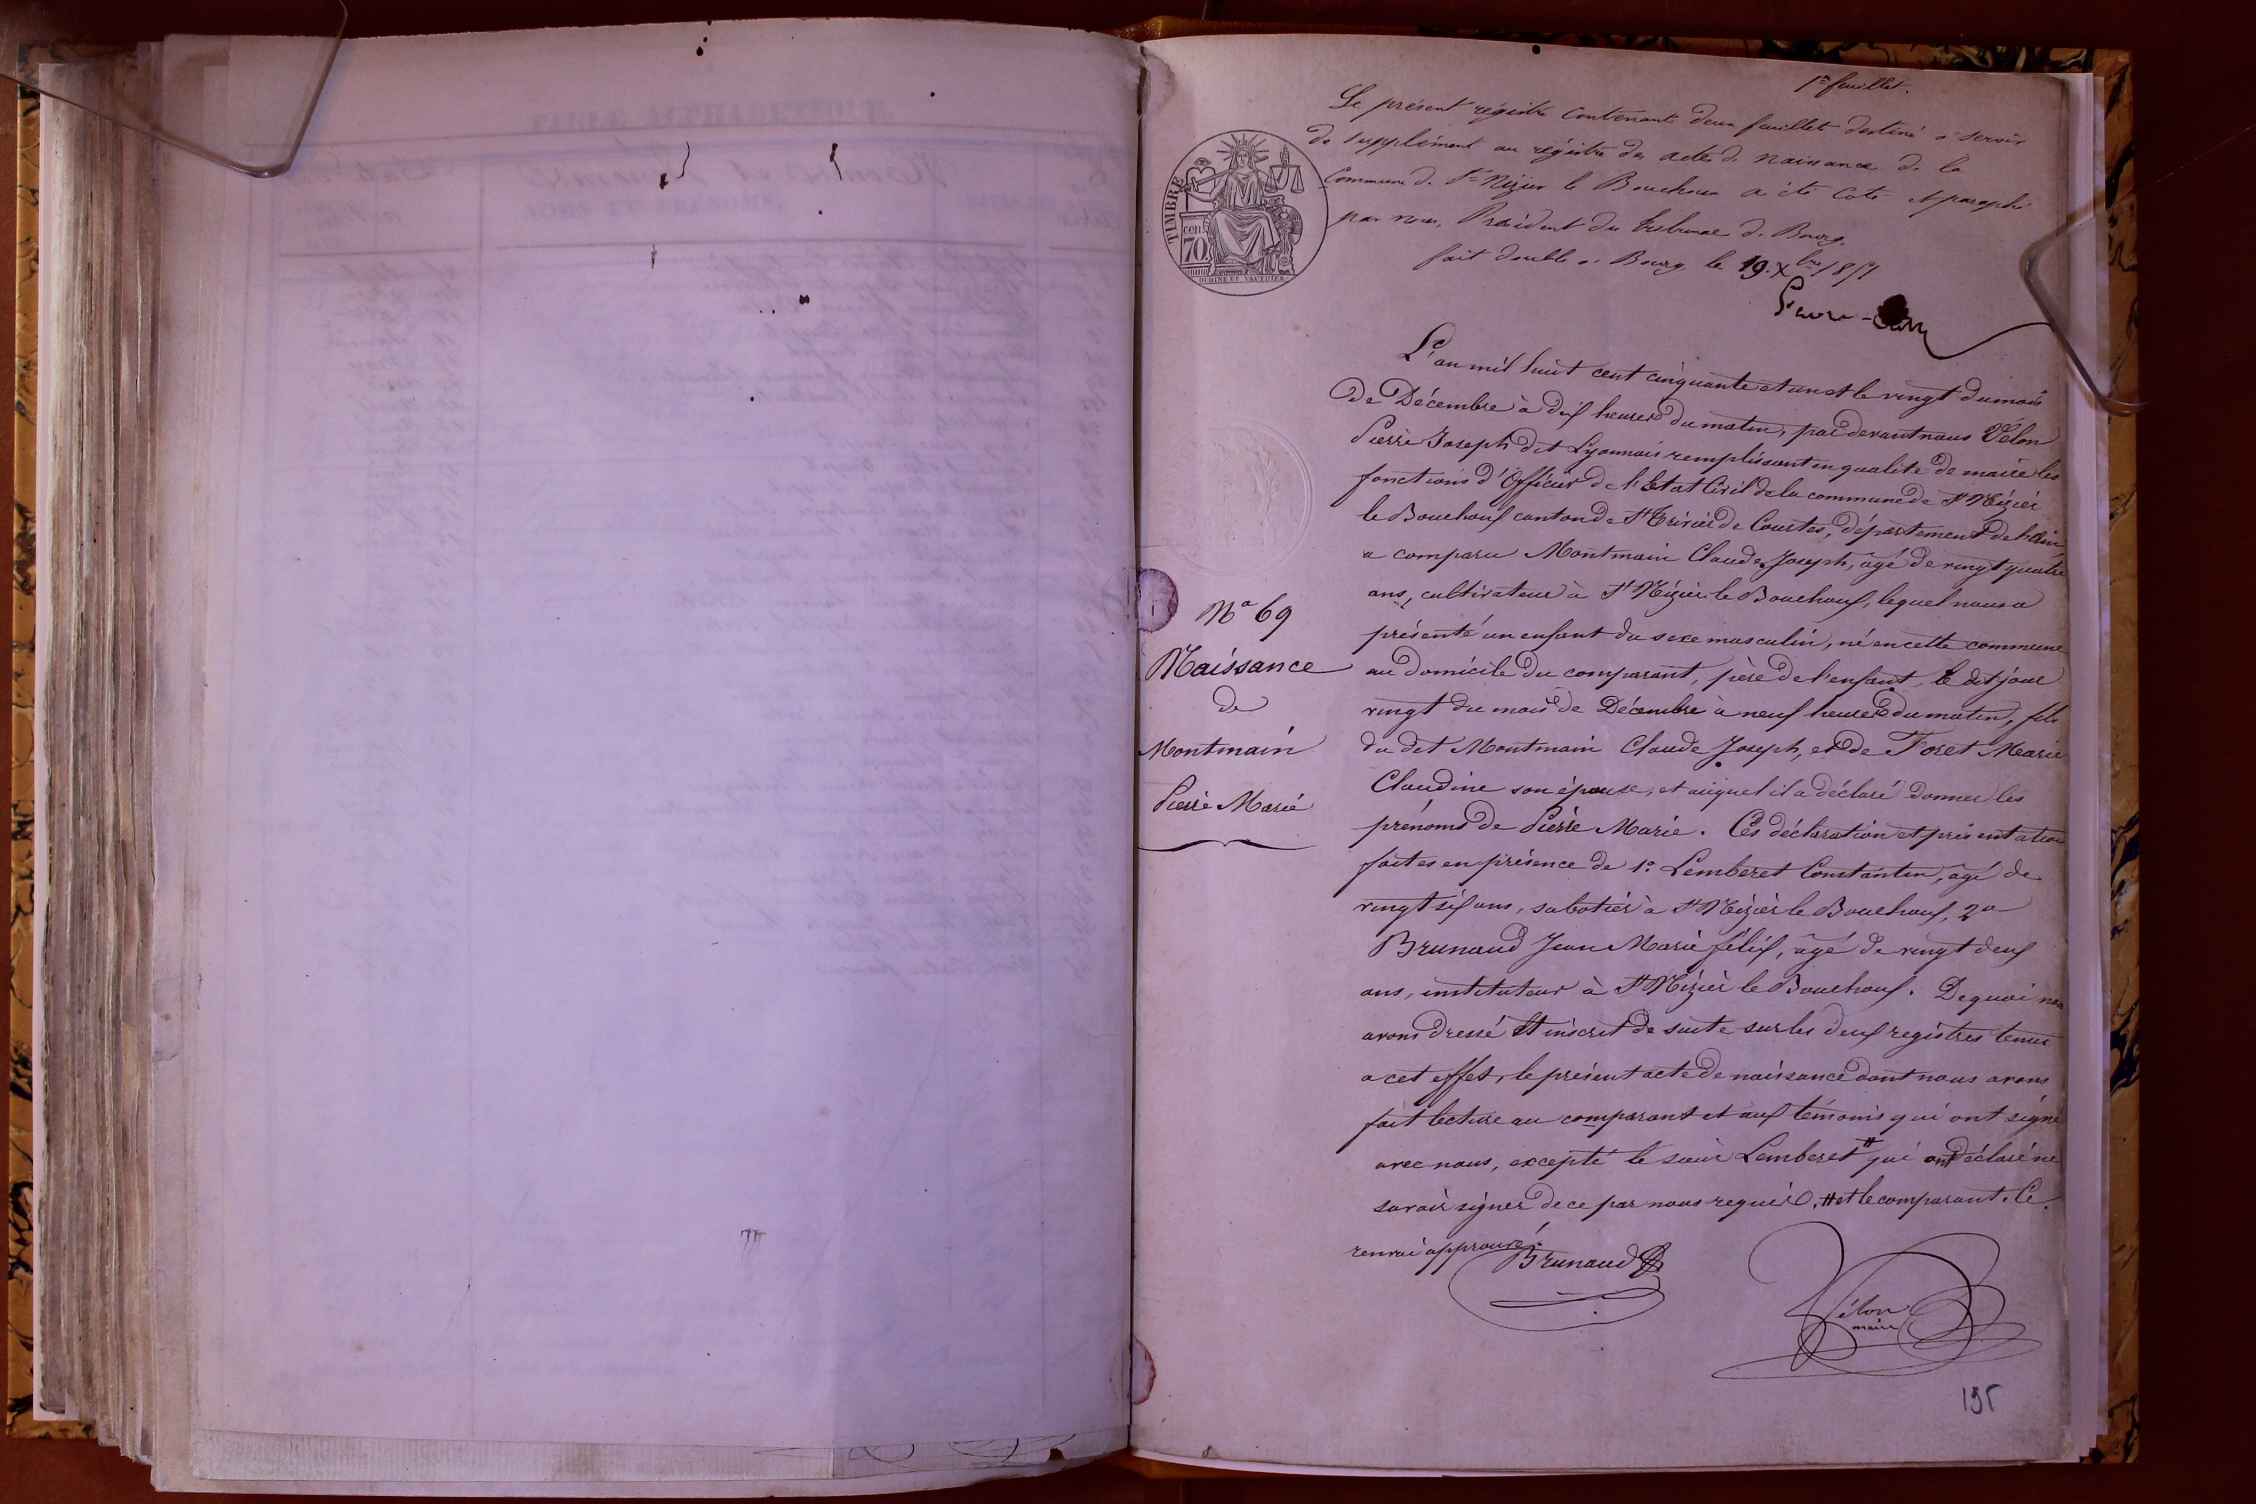 1er feuillet.
Le présent régistre contenant deux feuillet destiné à servir
de supplément au régistre des actes de naissance de la
Commune de St Nizier le Bouchoux a été coté et paraphé
par nous, Président du tribunal de Bourg.
fait double à Bourg le 19 Xbre 1851
TIMBRE
cen.
70
L'an mil huit cent cinquante et un et le vingt du mois
de Décembre à dix heures du matin, par devant nous Vélon
Pierre Joseph dit Lyonnais remplissant en qualité de maire les
fonctions d'Officier de l'Etat Civil de la commune de St Nizier
le Bouchoux canton de St Trivier de Courtes, département de l'Ain
a comparu Montmain Claude Joseph, âgé de vingt quatre
ans, cultivateur à St Nizier le Bouchoux, lequel nous a
présenté un enfant du sexe masculin, né en cette commune
au domicile du comparant, père de l'enfant, le dit jour
vingt du mois de Décembre à neuf heures du matin, fils
du dit Montmain Claude Joseph, et de Foret Marie
Claudine son épouse, et auquel il a déclaré donner les
prénoms de Pierre Marie. Ces déclaration et présentation
faites en présence de 1o Lemberet Constantin, âgé de
vingt six ans, sabotier à St Nizier le Bouchoux, 2o
Brunaud Jean Marie félix, âgé de vingt deux
ans, instituteur à St Nizier le Bouchoux. De quoi nous
avons dressé et inscrit de suite sur les deux registres tenus
a cet effet, le présent acte de naissance dont nous avons
fait lecture au comparant et aux témoins qui ont signé
avec nous, excepté le sieur Lemberet # qui ont déclaré ne
savoir signer de ce par nous requis. # et le comparant. Ce
renvoi approuvé.
Brunaud
Vélon
maire
No 69
Naissance
de
Montmain
Pierre Marie
195